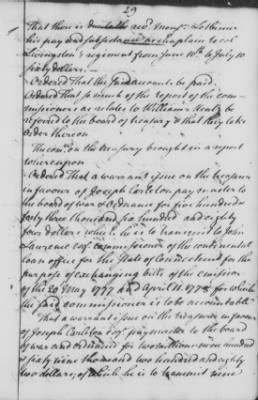 29
That there is due to the revd. mons. Lotbiniere
his pay and subsistance as chaplain to col
Livingston's regiment from June 10th to July 10
sixty dollars.—
Ordered That the said accounts be paid.
Ordered That so much of the report of the com-
missioners as relates to William Healy be
referred to the board of treasury & that they take
order thereon
The comee. on the treasury brought in a report
whereupon
Ordered That a warrant issue on the treasurer
in favour of Joseph Carleton pay master to
the board of war & ordnance for five hundred
forty three thousand six hundred and eighty
four dollars which he is to transmit to John
Lawrence esqr. commissioner of the continental
loan office for the State of Connecticut for the
purpose of exchanging bills of the emission
of the 20 May 1777 and April 11. 1778 for which
the said commissioner is to be accountable
That a warrant issue on the treasurer in favour
of Joseph Carleton esqr. paymaster to the board
of war and ordnance for two millions nine hundred
& sixty nine thousand two hundred and eighty
two dollars, of which he is to transmit nine